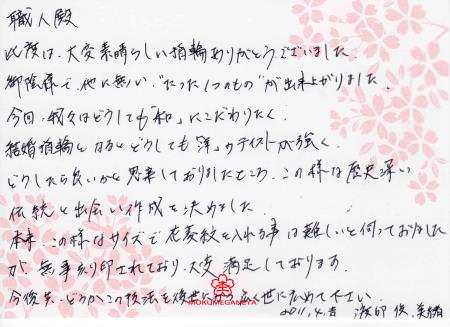 職人殿
此度は、大変素晴らしい指輪ありがとうございました。
御陰様で、他に無い、"たった1つのもの"が出来上がりました。
今回、我々はどうしても「和」にこだわりたく、
結婚指輪となるとどうしても「洋」のテイストが強く、
どうしたら良いかと思案しておりましたところ、この様な歴史深い
伝統と出会い作成を決めました。
本来、この様なサイズで花菱紋を入れる事は難しいと伺っておりました
が、無事刻印されており、大変満足しております。
今後共、どうかこの技法を後世に、広く世に広めて下さい。
MOKUMEGANEYA
2011.4.吉